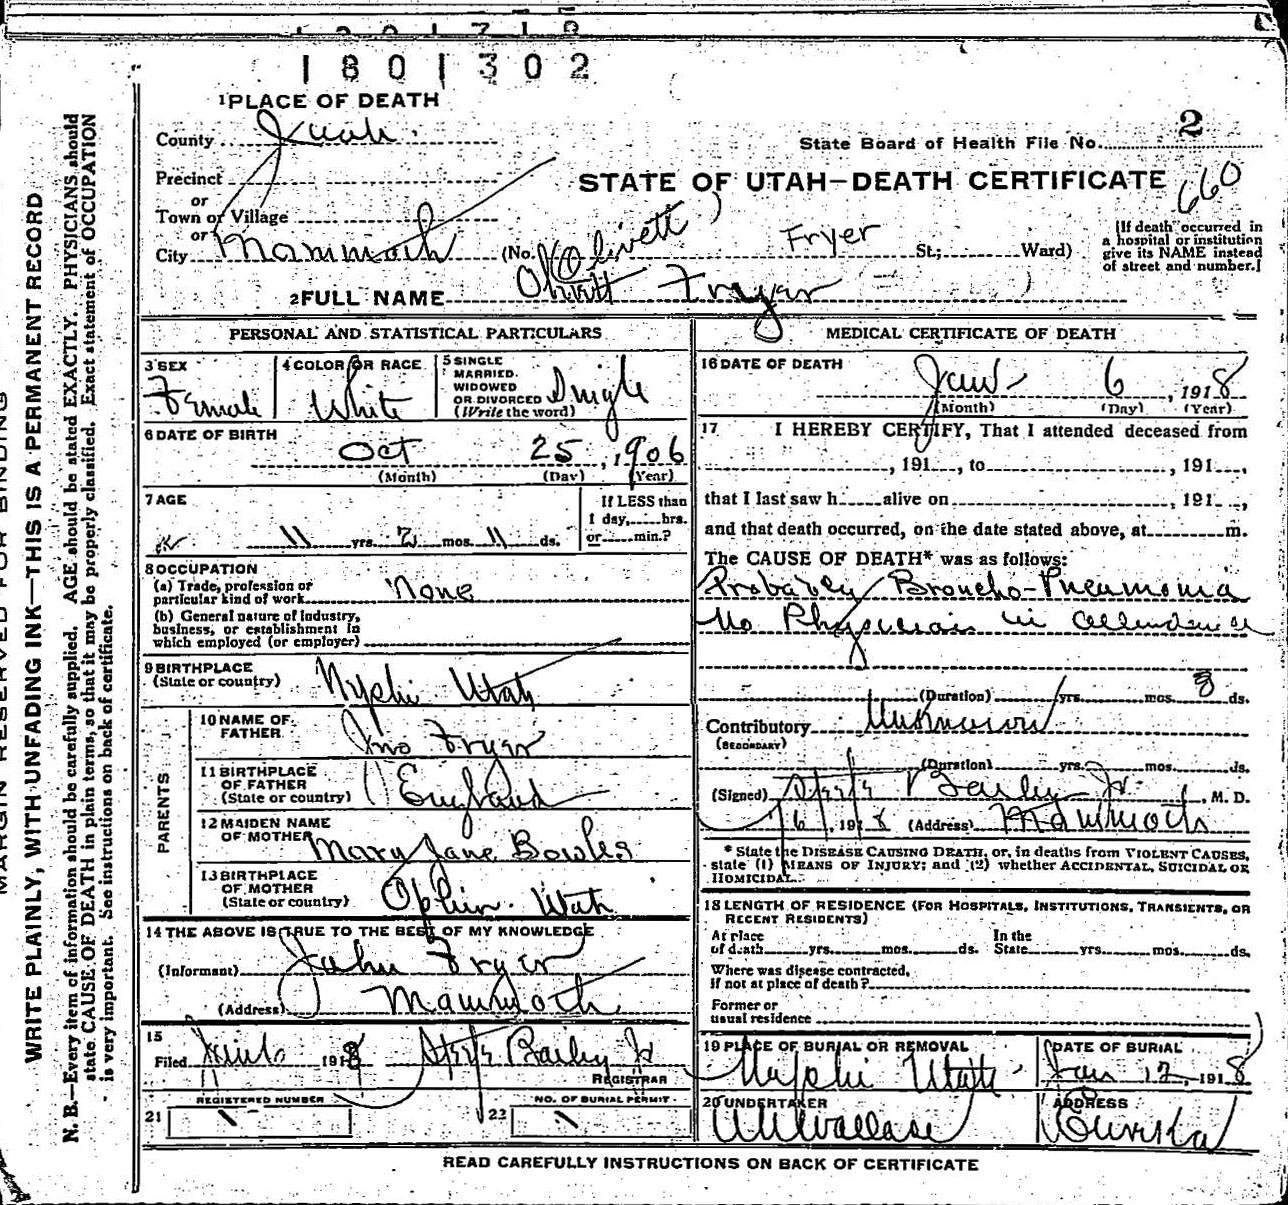 1801302
1 PLACE OF DEATH
County Juab
State Board of Health File No. 2
Precinct
or
Town or Village
or
City Mammoth
STATE OF UTAH—DEATH CERTIFICATE
660
(No. Olivett Fryer St.; Ward)
[If death occurred in
a hospital or institution
give its NAME instead
of street and number.]
2 FULL NAME Olivett Fryer
PERSONAL AND STATISTICAL PARTICULARS
3 SEX
Female
4 COLOR OR RACE
White
5 SINGLE
MARRIED.
WIDOWED
OR DIVORCED
(Write the word)
Single
6 DATE OF BIRTH
Oct 25, 1906
(Month) (Day) (Year)
7 AGE
11 yrs. 2 mos. 11 ds.
If LESS than
1 day, hrs.
or min.?
8 OCCUPATION
(a) Trade, profession or
particular kind of work None
(b) General nature of industry,
business, or establishment in
which employed (or employer)
9 BIRTHPLACE
(State or country) Nephi Utah
PARENTS
10 NAME OF
FATHER Jno Fryer
11 BIRTHPLACE
OF FATHER
(State or country) England
12 MAIDEN NAME
OF MOTHER Mary Jane Bowles
13 BIRTHPLACE
OF MOTHER
(State or country) Ophir Utah
14 THE ABOVE IS TRUE TO THE BEST OF MY KNOWLEDGE
(Informant) John Fryer
(Address) Mammoth
15
Filed 1918 Bailey Jr
REGISTRAR
REGISTERED NUMBER
21
NO. OF BURIAL PERMIT
22
MEDICAL CERTIFICATE OF DEATH
16 DATE OF DEATH
Jan 6, 1918
(Month) (Day) (Year)
17 I HEREBY CERTIFY, That I attended deceased from
, 191 , to , 191 ,
that I last saw h alive on , 191 ,
and that death occurred, on the date stated above, at m.
The CAUSE OF DEATH* was as follows:
Probably Broncho-Pneumonia
No Physician in attendance
(Duration) yrs. mos. 8 ds.
Contributory Unknown
(SECONDARY)
(Duration) yrs. mos. ds.
(Signed) Bailey Jr. , M. D.
1/6, 1918 (Address) Mammoth
* State the DISEASE CAUSING DEATH, or, in deaths from VIOLENT CAUSES,
state (1) MEANS OF INJURY; and (2) whether ACCIDENTAL, SUICIDAL OR
HOMICIDAL.
18 LENGTH OF RESIDENCE (FOR HOSPITALS, INSTITUTIONS, TRANSIENTS, OR
RECENT RESIDENTS)
At place
of death yrs. mos. ds.
In the
State yrs. mos. ds.
Where was disease contracted,
if not at place of death?
Former or
usual residence
19 PLACE OF BURIAL OR REMOVAL
Nephi Utah
DATE OF BURIAL
Jan 12, 1918
20 UNDERTAKER
Wallace
ADDRESS
Eureka
READ CAREFULLY INSTRUCTIONS ON BACK OF CERTIFICATE
MARGIN RESERVED FOR BINDING
WRITE PLAINLY, WITH UNFADING INK—THIS IS A PERMANENT RECORD
N. B.—Every item of information should be carefully supplied. AGE should be stated EXACTLY. PHYSICIANS should
state CAUSE OF DEATH in plain terms, so that it may be properly classified. Exact statement of OCCUPATION
is very important. See instructions on back of certificate.